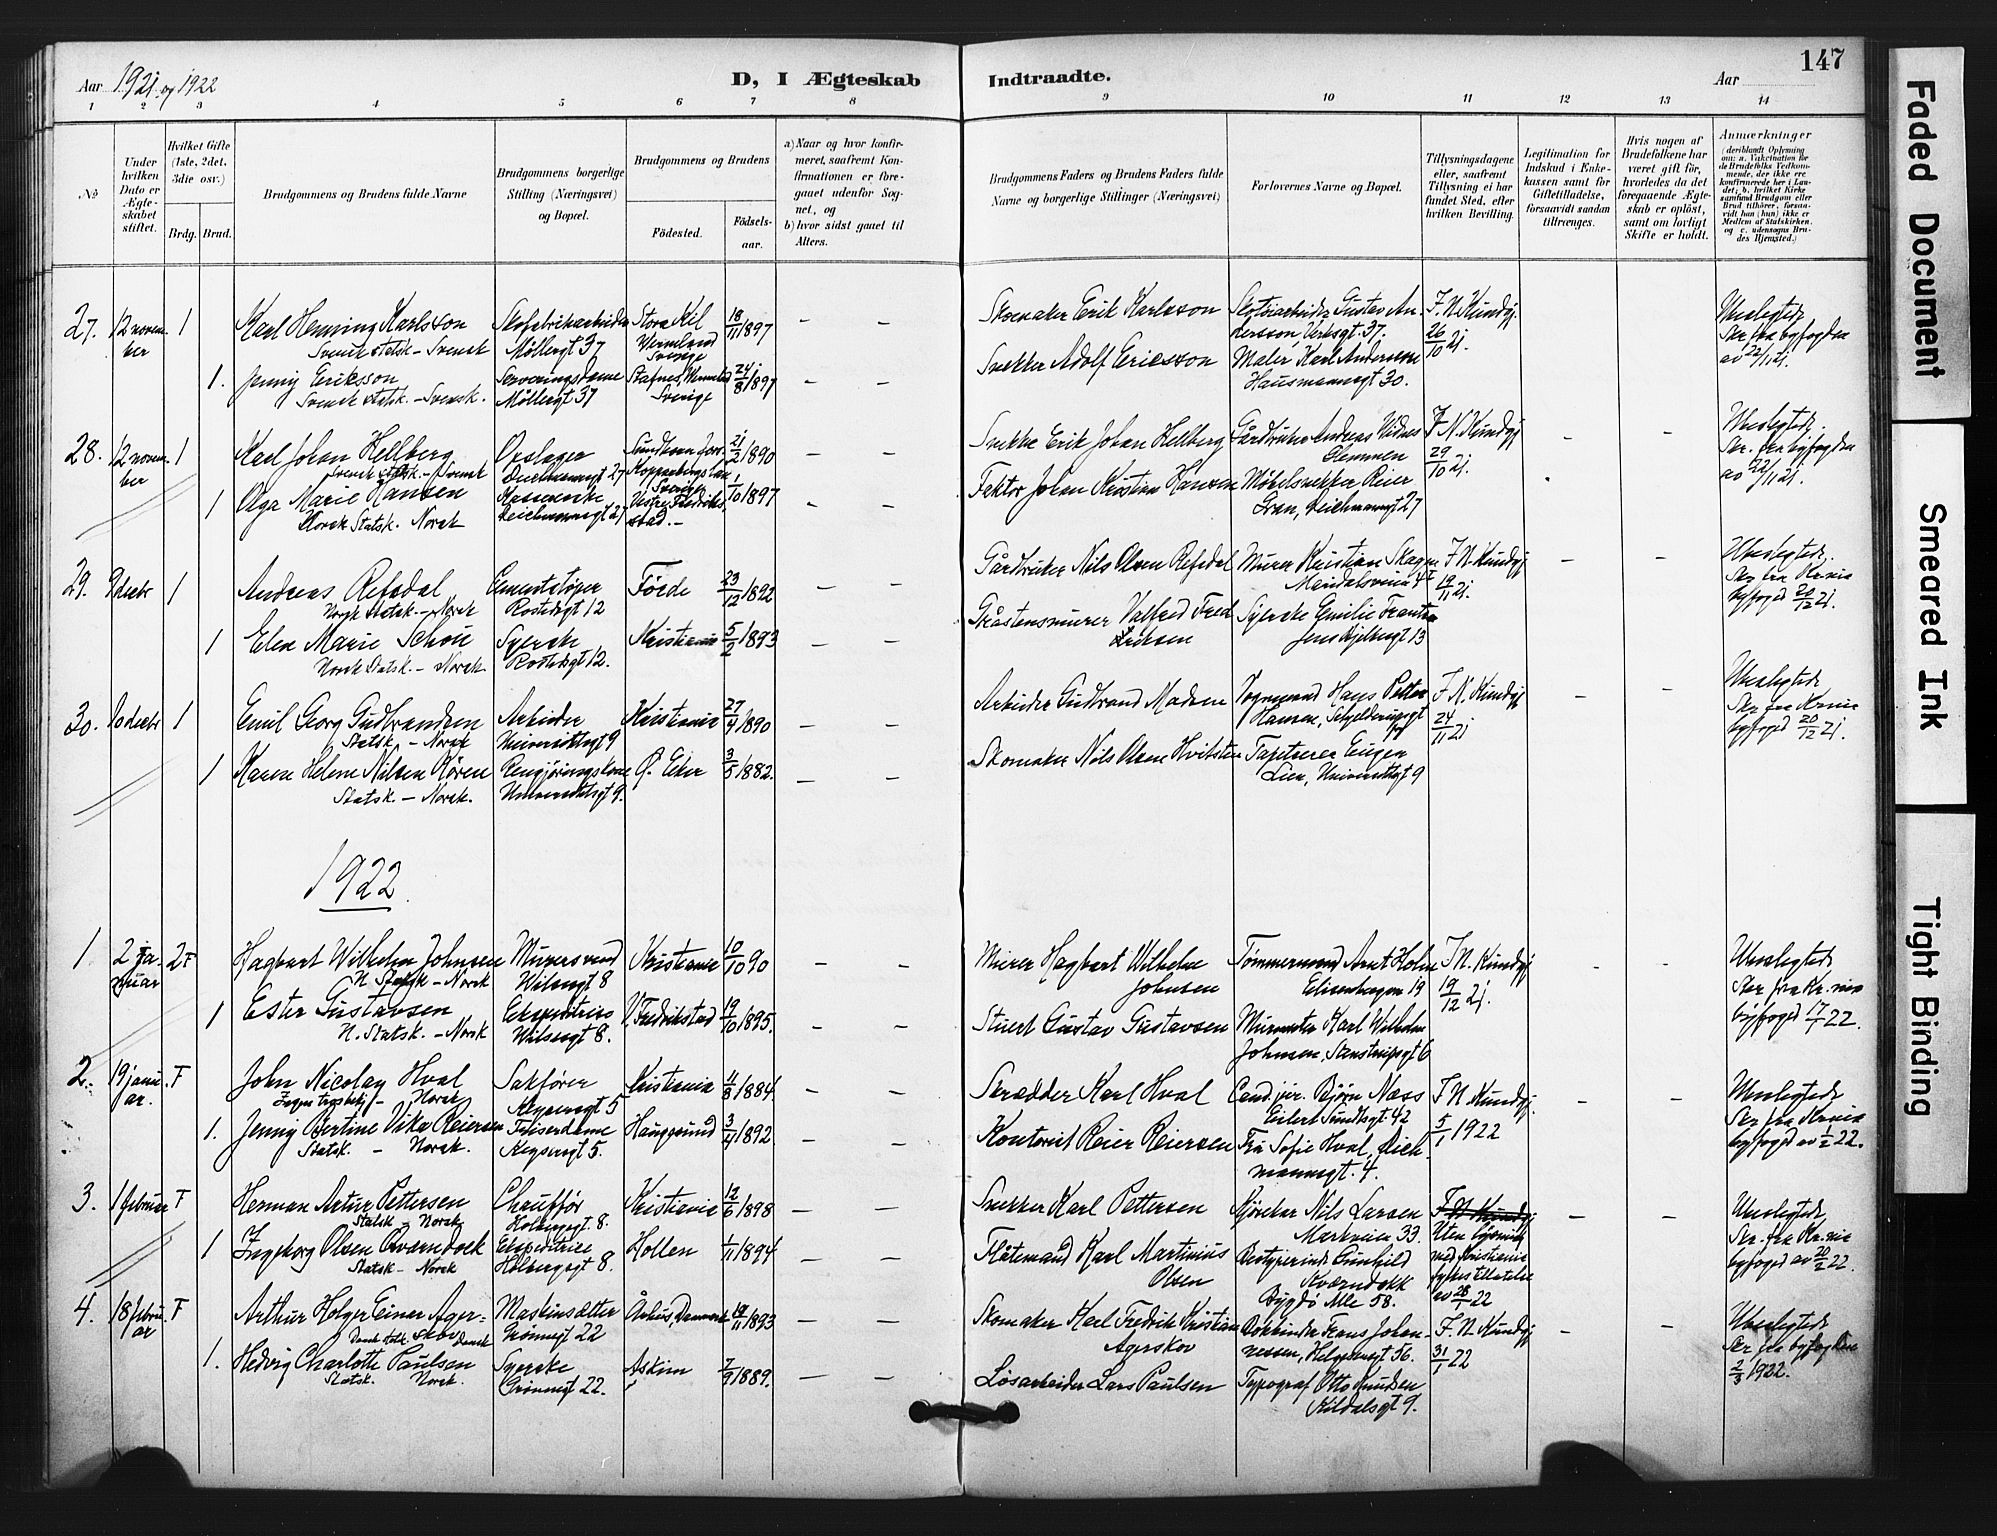 147
Aar 1921 og 1922
D, I Ægteskab Indtraadte.
Aar
1 2 3 4 5 6 7 8 9 10 11 12 13 14
No
Under hvilken Dato er Ægteskabet stiftet.
Hvilket Gifte (1ste, 2det, 3die osv.)
Brdg. Brud.
Brudgommens og Brudens fulde Navne
Brudgommens borgerlige Stilling (Næringsvei) og Bopæl.
Brudgommens og Brudens
Födested. Födselsaar.
a) Naar og hvor konfirmeret, saafremt Konfirmationen er foregaaet udenfor Sognet, og
b) hvor sidst gaaet til Alters.
Brudgommens Faders og Brudens Faders fulde Navne og borgerlige Stillinger (Næringsvei)
Forlovernes Navne og Bopæl.
Tillysningsdagene eller, saafremt Tillysning ei har fundet Sted, efter hvilken Bevilling.
Legitimation for Indskud i Enkekassen samt for Giftetilladelse, forsaavidt saadan tiltrænges.
Hvis nogen af Brudefolkene har været gift før, hvorledes da det foregaaende Ægteskab er oplöst, samt om lovligt Skifte er holdt.
Anmærkninger (deriblandt Oplysning om: a. Vakcination for de Brudefolks Vedkommende, der ikke ere konfirmerede her i Landet; b. hvilket Kirkesamfund Brudgom eller Brud tilhører, forsaavidt han (hun) ikke er Medlem af Statskirken, og c. udensogns Brudes Hjemsted.)
27. 12 november 1 Karl Henning Karlsson Skofabrikarbeider Stora Kil 18/11 1897 – – Skomaker Erik Karlsson Skotöiarbeider Gustav An- F. N. Kundgj.
Svensk statsk – Svensk Möllergt 37 Vermland Sverige dersson, Verksgt. 37. 26/10 21. Ubeslegtede
Skr. fra byfogden av 22/11 21.
1. Jenny Eriksson Serveringsdame Stafnes, Vermland 24/8 1897 – – Snekker Adolf Ericsson Maler Karl Andersson
Svensk statsk. – Svensk. Möllergt 37 Sverige Hausmannsgt 30.
28. 12 november 1 Karl Johan Hellberg 21/2 1890 – – Snekker Erik Johan Hellberg Gårdbruker Andreas F. N. Kundgj – – Ubeslegtede
Svensk statsk. – Svensk Deichmannsgt 27 Kopparbergs län Sverige Glemmen 29/10 21. Skr. fra byfogden av 22/11 21.
1 Olga Marie Hansen 1/10 1897 – – Faktor Johan Kristian Hansen Möbelsnekker Reier
Norsk Statsk. Norsk Deichmannsgt 27 Vestre Fredrikstad. – Gran, Deichmansgt 27
29. 9 decbr 1 Andreas Refsdal Cementstöper Förde 23/12 1892 – – Gårdbruker Nils Olsen Refsdal Murer Kristian Skagen F. N. Kundgj – – Ubeslegtede.
Norsk Statsk. – Norsk Rostedsgt 12 19/11 21. Skr fra Kr.nia byfoged 20/12 21.
1 Elen Marie Schou Syerske Kristiania 5/2 1893 – – Gråstensmurer Valfred Fred Syerske Emilie
Norsk Statsk. – Norsk Rostedsgt 12. Eriksen Jens Bjelkesgt 13
30. 10 decbr 1 Emil Georg Gudbrandsen Arbeider Kristiania 27/4 1890 – – Arbeider Gudbrand Madsen Vognmand Hans Petter F. N. Kundgj – – Ubeslegtede
Statsk. – Norsk Universitetsgt 9 Hansen, Schjelderupsgt 24/11 21 Skr fra Kr.nia byfoged 20/12 21.
1 Karen Helene Nilsen Kören Rengjöringskone Ö. Eker 3/5 1882. – – Skomaker Nils Olsen Hvitsten Tapetserer Eugen
Statsk. – Norsk. Universitetsgt 9. Lien, Universitetsgt 9
1922.
1 2 januar 2 F Hagbart Wilhelm Johnsen Murersvend Kristiania 10/10 90 – – Murer Hagbart Wilhelm Tömmermand Arnt Holm F. N. Kundgj – – Ubeslegtede
N. Statsk – Norsk Wilsesgt 8 Johnsen Elisenbergvn 19 19/12 21. Skr. fra Kr.nia byfoged 17/1 22.
1 Ester Gustavsen Ekspeditrise V. Fredrikstad 19/10 1895. – – Stuert Gustav Gustavsen Murmester Karl Wilhelm
N. Statsk. – Norsk Wilsesgt 8. Johnsen, Sanstrupsgt 6
2. 19 januar. F John Nicolay Hval Sakförer Kristiania 11/8 1884 – – Skrædder Karl Hval Cand. jur. Björn Næss F. N. Kundgj. – – Ubeslegtede
Ingen trosbekj – Norsk Keysersgt 5 Eilert Sundtsgt. 42 5/1 1922 Skr fra Kr.nia byfoged av 1/2 22.
1. Jenny Bertine Vika Reiersen Friserdame Haugesund 3/4 1892 – – Kontorist Reier Reiersen Fru Sofie Hval, Deich-
Statsk. – Norsk. Keysersgt 5. mannsgt. 4.
3. 1 februar F Herman Artur Pettersen Chaufför Kristiania 12/6 1898 – – Snekker Karl Pettersen Kjörekar Nils Larsen F. N. Kundgj – – Ubeslegtede
Statsk – Norsk Holbergsgt. 8. Markveien 33. Uten lysning Skr. fra Kr.nia
1 Ingeborg Olsen Kværndock Ekspeditrice Hollen 1/11 1894 – Flåtemand Karl Martinius Gunhild med Kristiania byfoged av 20/2 22.
Statsk – Norsk Holbergsgt 8. Olsen Kværndokk fylkes tillatelse
Bygdö Alle 58. av 28/1 22
4. 18 februar F Arthur Holger Einar Ager- Maskinsætter Århus, Danmark 19/11 1893 – – Skomaker Karl Fredrik Kristian Bokbinder Frans Johan- F. N. Kundgj – – Ubeslegtede
skov Dansk statsk. Dansk Grönnegt 22 Agerskov nessen, Helgesensgt 56. 31/1 22 Skr fra byfogden
1. Hedvig Charlotte Paulsen Syerske Askim 7/9 1889. – – Lösarbeider Lars Paulsen Typograf Otto Knudsen 2/3 1922.
Statsk. Norsk. Grönnegt 22. Kildalsgt 9.
Faded Document
Smeared Ink
Tight Binding